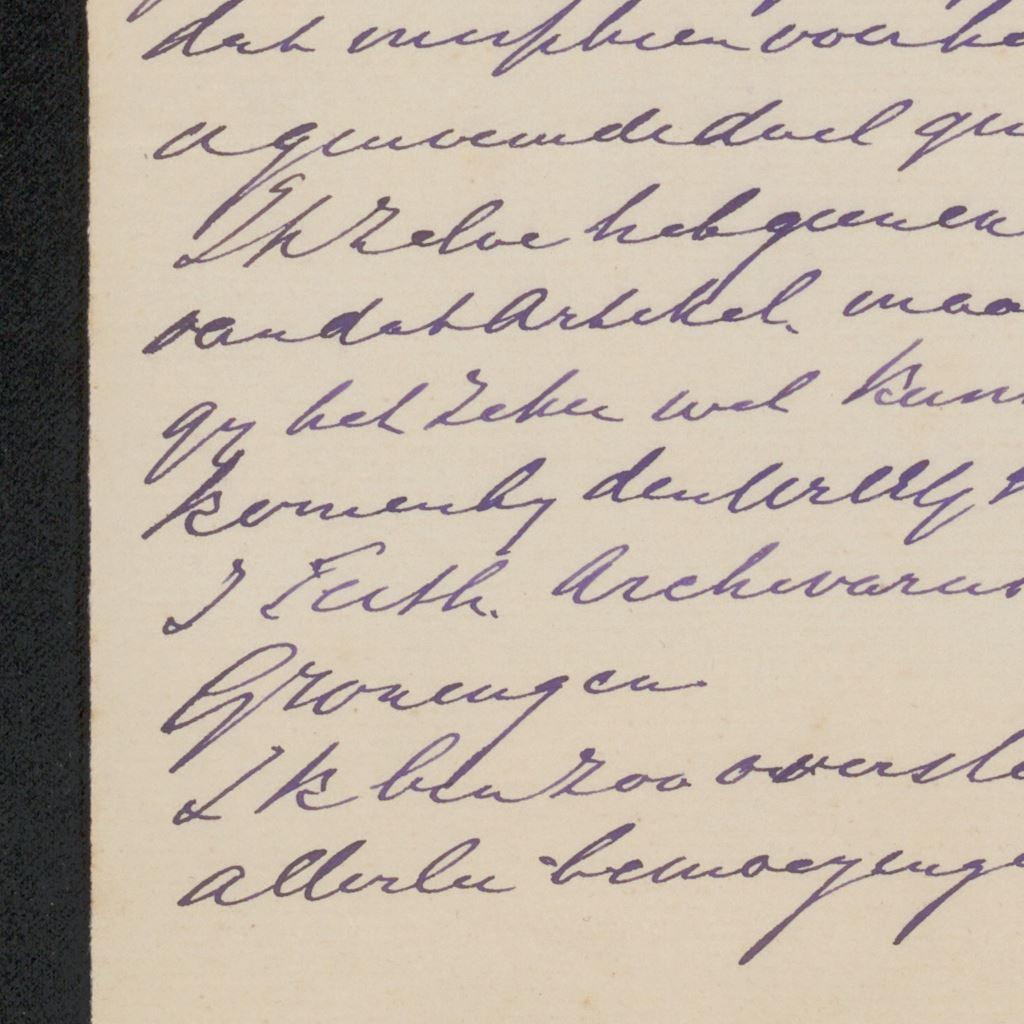 dat misschien voor he
u genoemde doel gee
Ik zelve heb geen en
van dat Artikel. maa
gy het zeker wel kunn
komen by den
J Feith. Archivaris
Groningen
Ik ben zoo overst
allerlei bemoeyinge